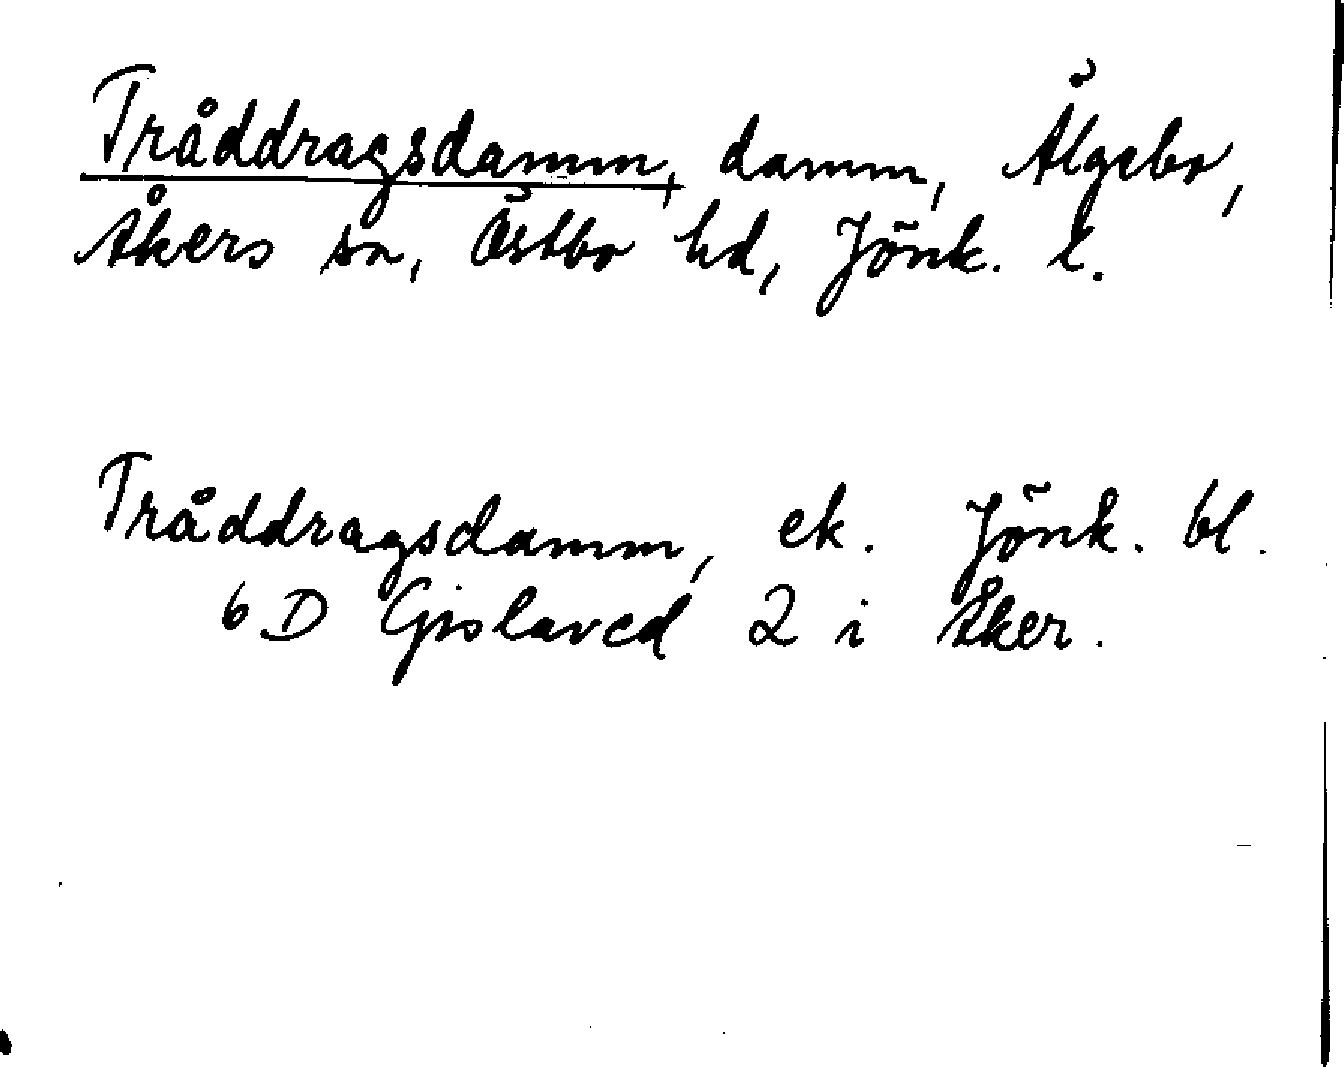 Tråddragsdamm, damm, Älgebo,
Åkers sn, Östbo hd, Jönk. l.
Tråddragsdamm, ek. Jönk. bl.
6 D Gislaved 2 i Åker.